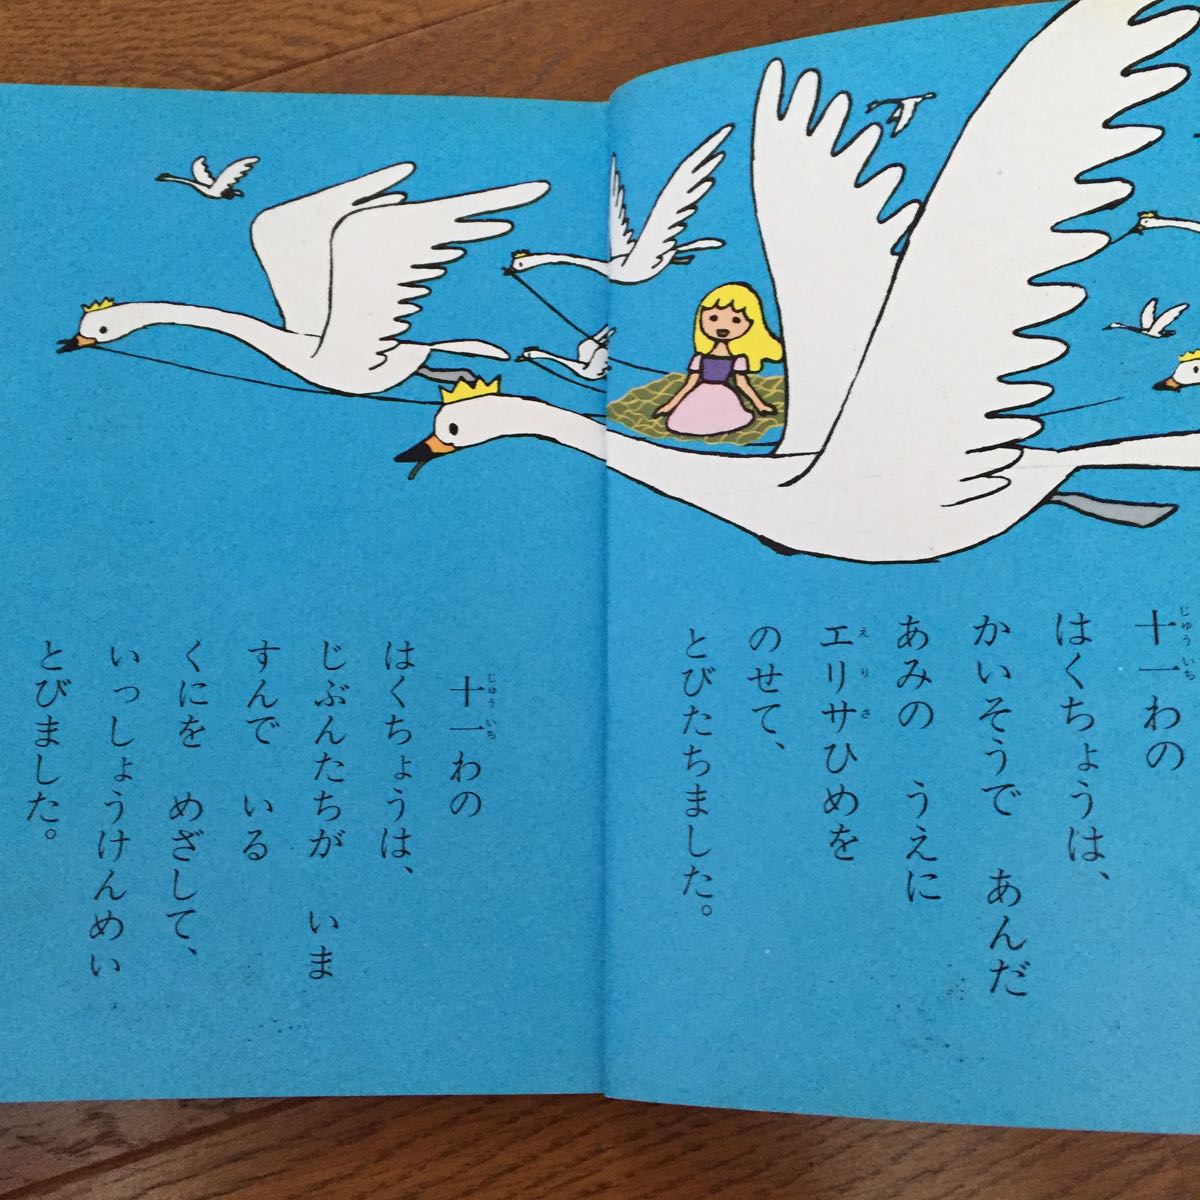 十一わの
はくちょうは、
かいそうで　あんだ
あみの　うえに
エリサひめを
のせて、
とびたちました。
十一わの
はくちょうは、
じぶんたちが　いま
すんで　いる
くにを　めざして、
いっしょうけんめい
とびました。